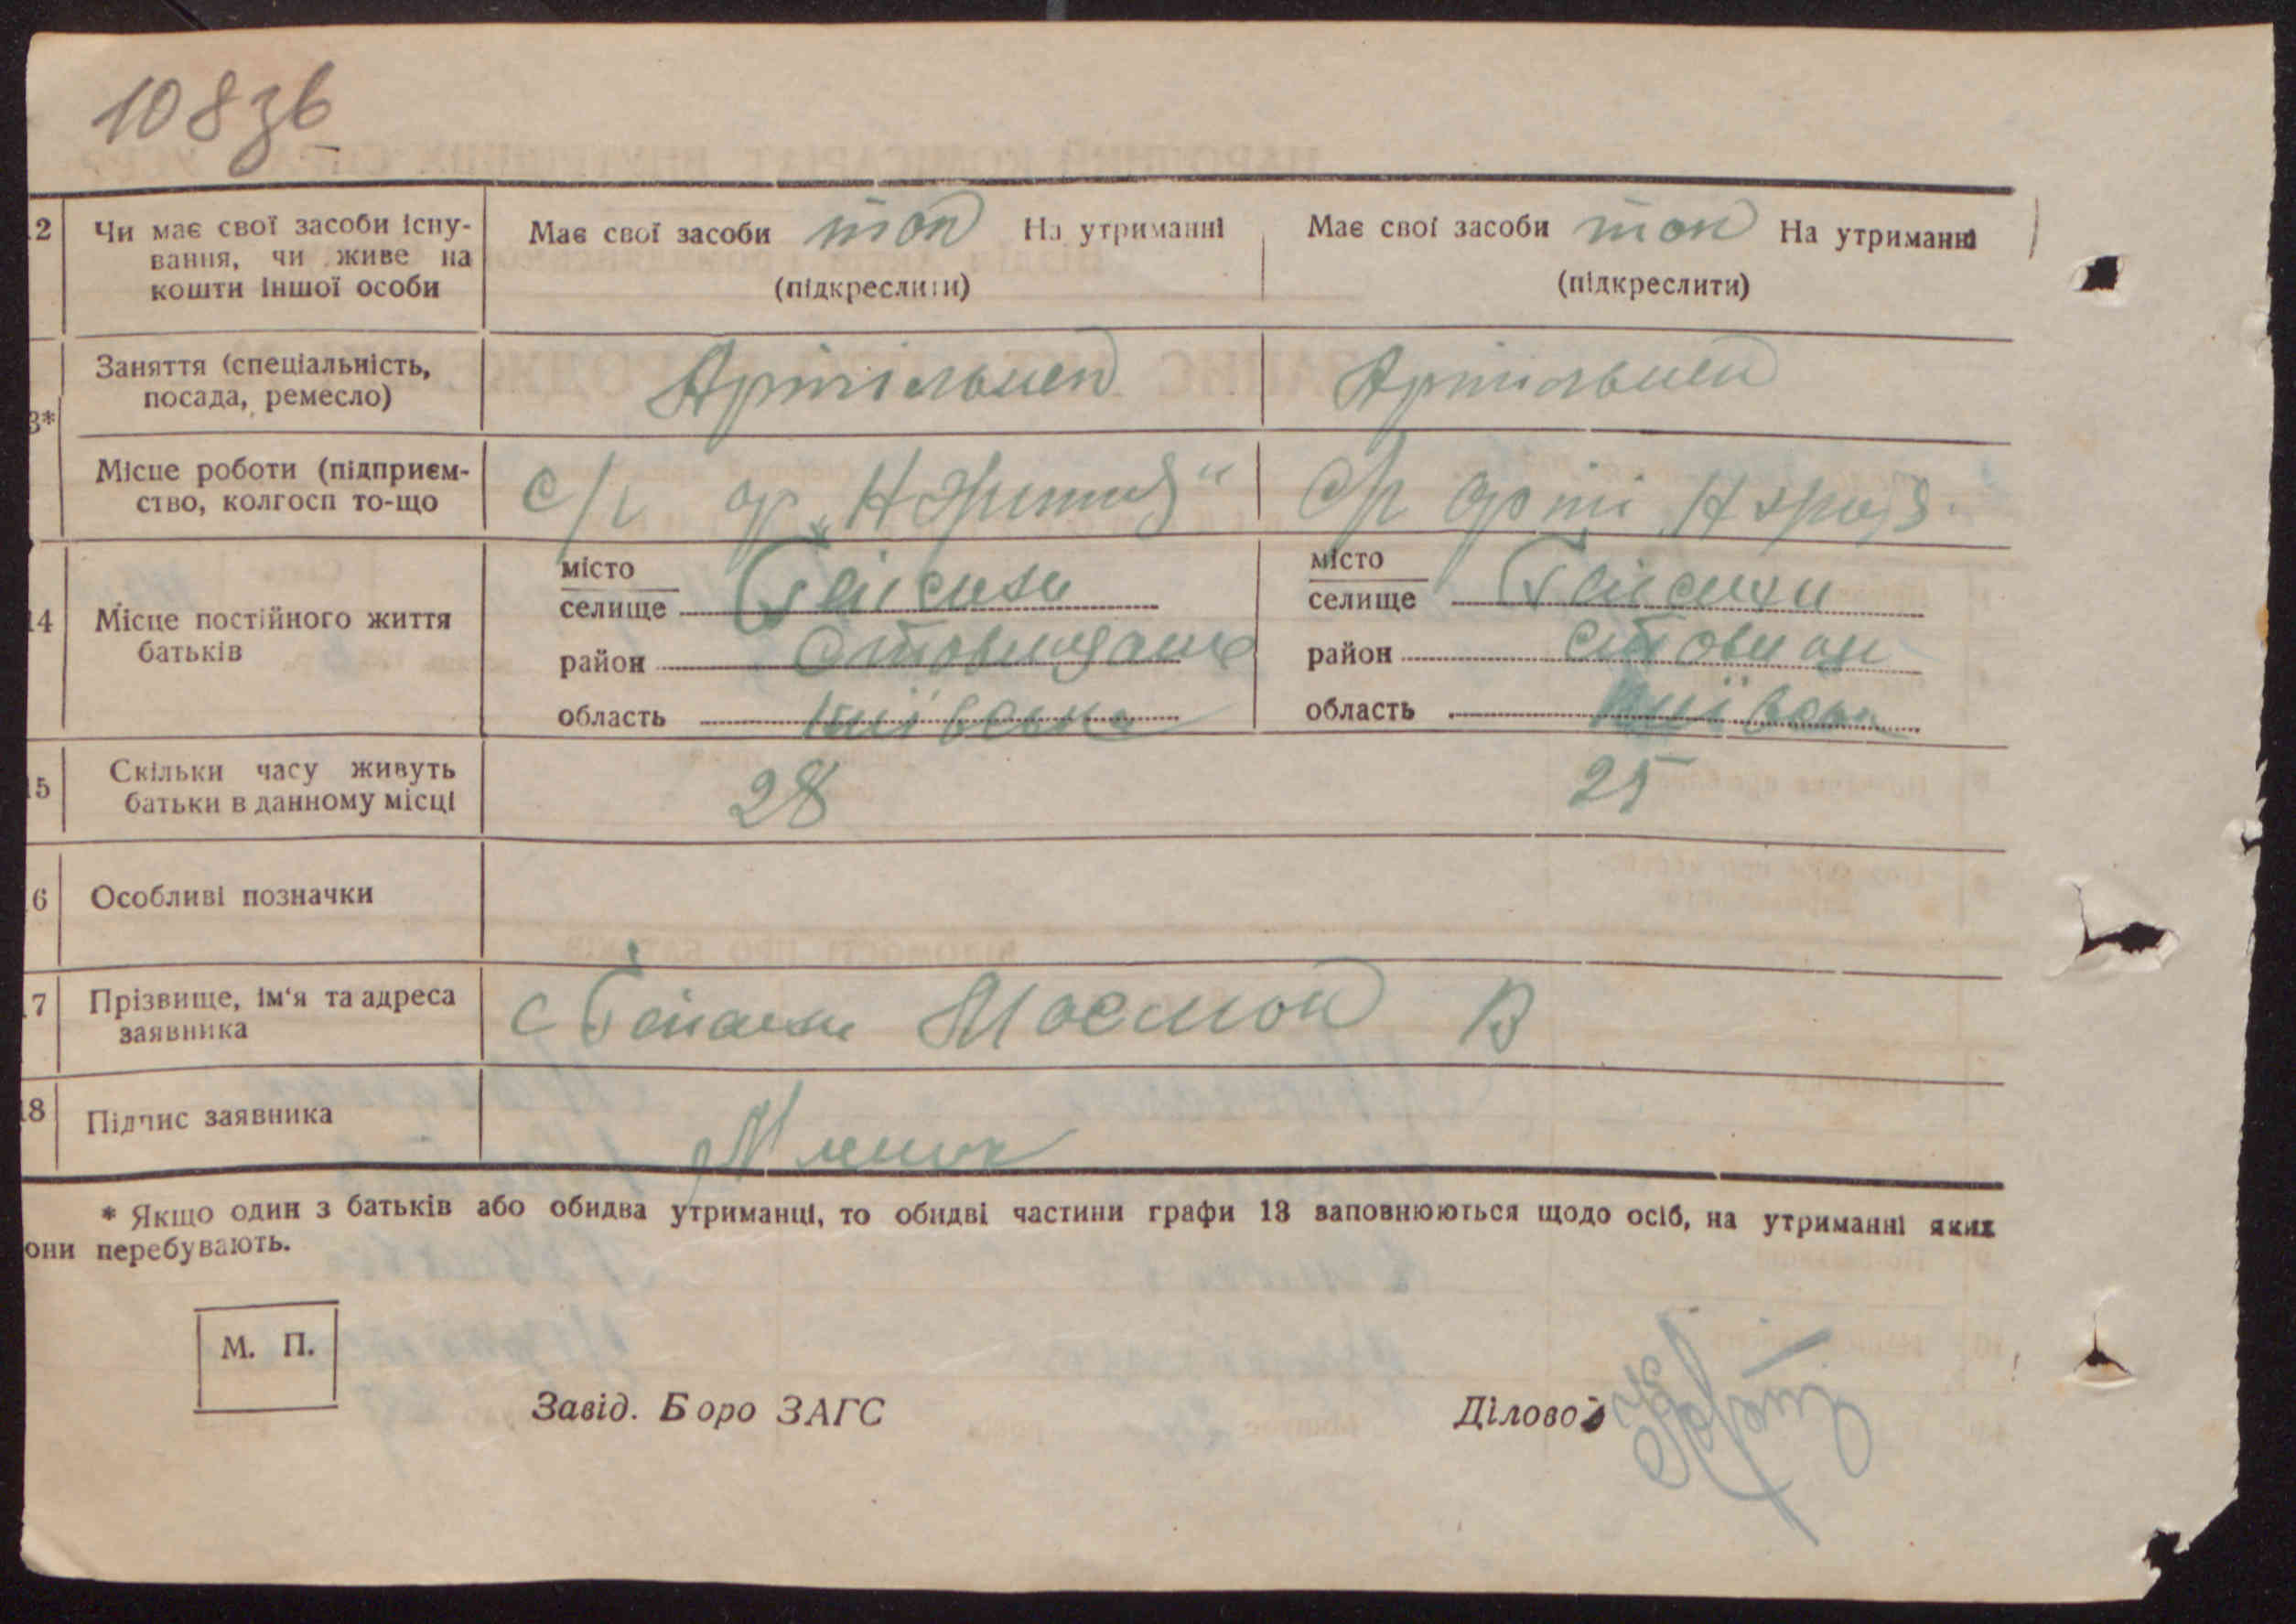 108зв
2 Чи має свої засоби існу-
вання, чи живе на
кошти іншої особи
Має свої засоби На утриманні
(підкреслити)
Має свої засоби На утриманні
(підкреслити)
3* Заняття (спеціальність,
посада, ремесло)
Артільнец
Артильнец
Місце роботи (підприєм-
ство, колгосп то-що
с/г ар.
с/г арті
14 Місце постійного життя
батьків
місто
селище Гейсихи
район Ставищанс
область Київська
місто
селище Гейсихи
район Ставищ
область Київськ
15 Скільки часу живуть
батьки в данному місці
28
25
6 Особливі позначки
7 Прізвище, ім'я та адреса
заявника
с В
18 Підпис заявника
* Якщо один з батьків або обидва утриманці, то обидві частини графи 13 заповнюються щодо осіб, на утриманні яких
они перебувають.
М. П.
Завід. Боро ЗАГС
Діловод